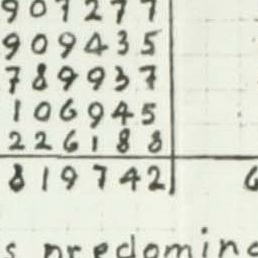 9 0 9 4 3 5
7 8 9 9 3 7
1 0 6 9 4 5
2 2 6 1 8 8
8 1 9 7 4 2 6
s predomina